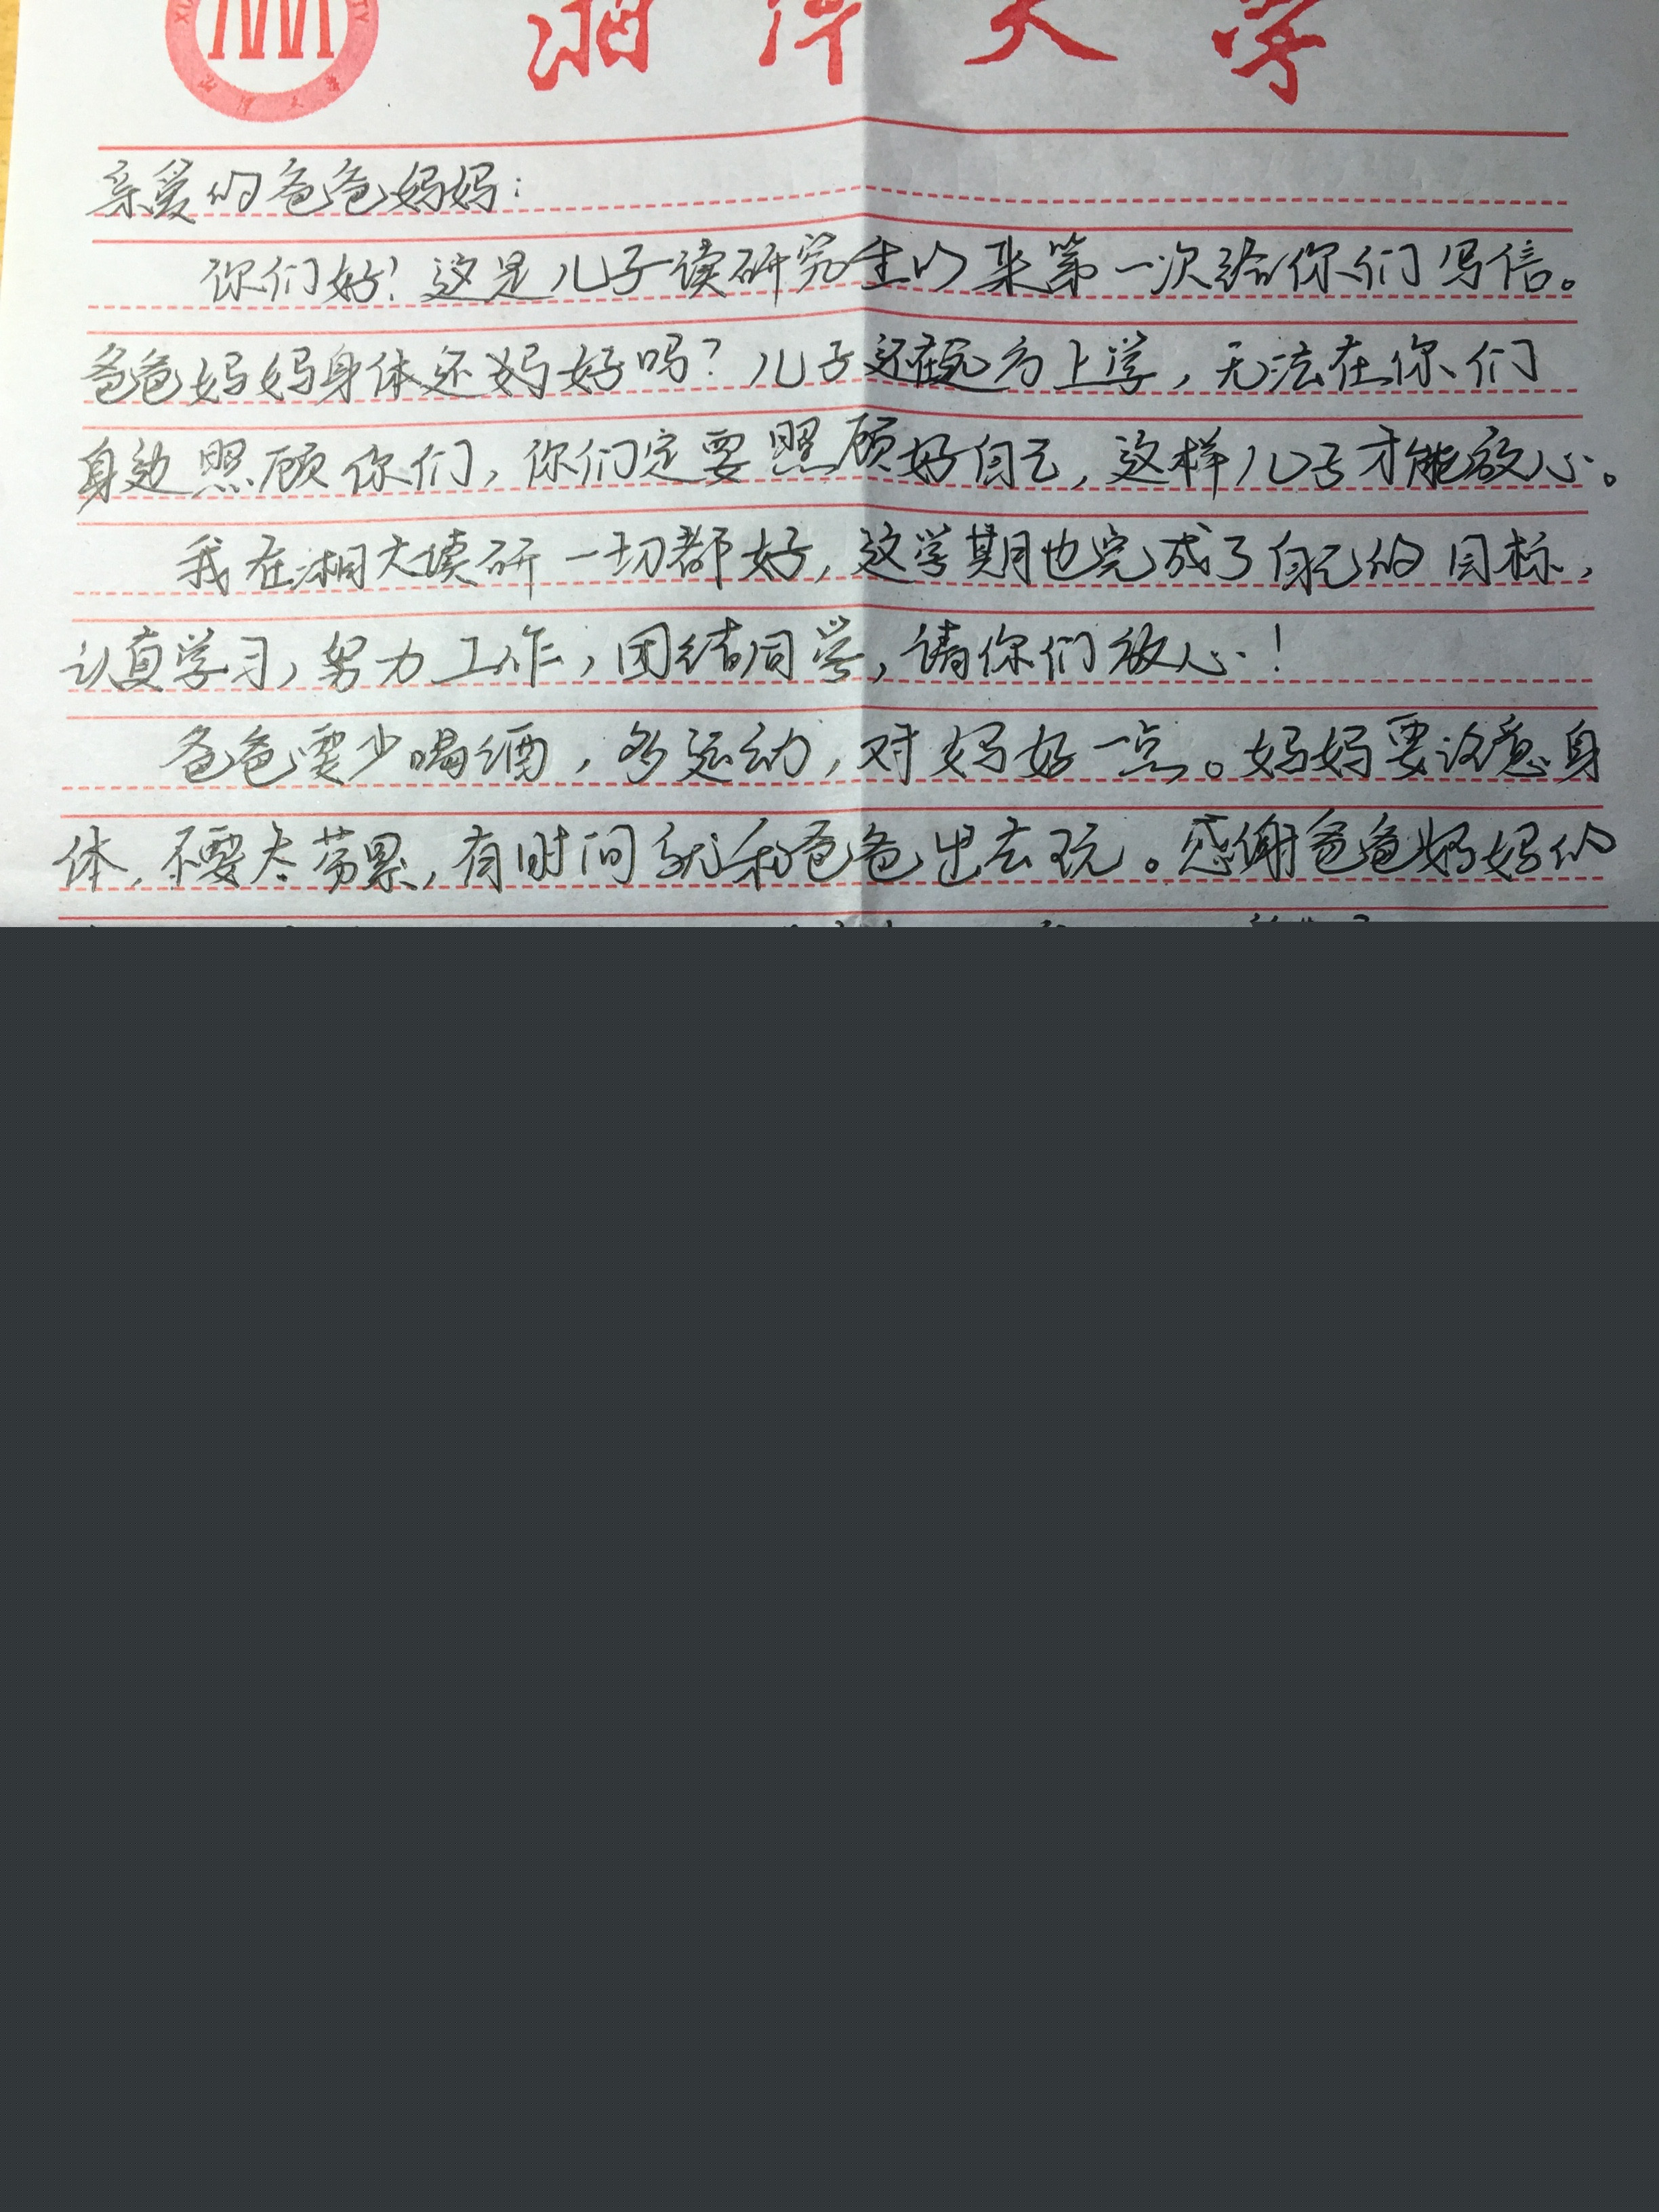 湘潭大学
亲爱的爸爸妈妈：
你们好！这是儿子读研究生以来第一次给你们写信。
爸爸妈妈身体还好吗？儿子还在远方上学，无法在你们
身边照顾你们，你们定要照顾好自己，这样儿子才能放心。
我在湘大读研一切都好，这学期也完成了自己的目标，
认真学习，努力工作，团结同学，请你们放心！
爸爸要少喝酒，多运动，对妈好一点。妈妈要注意身
体，不要太劳累，有时间就和爸爸出去玩。感谢爸爸妈妈的